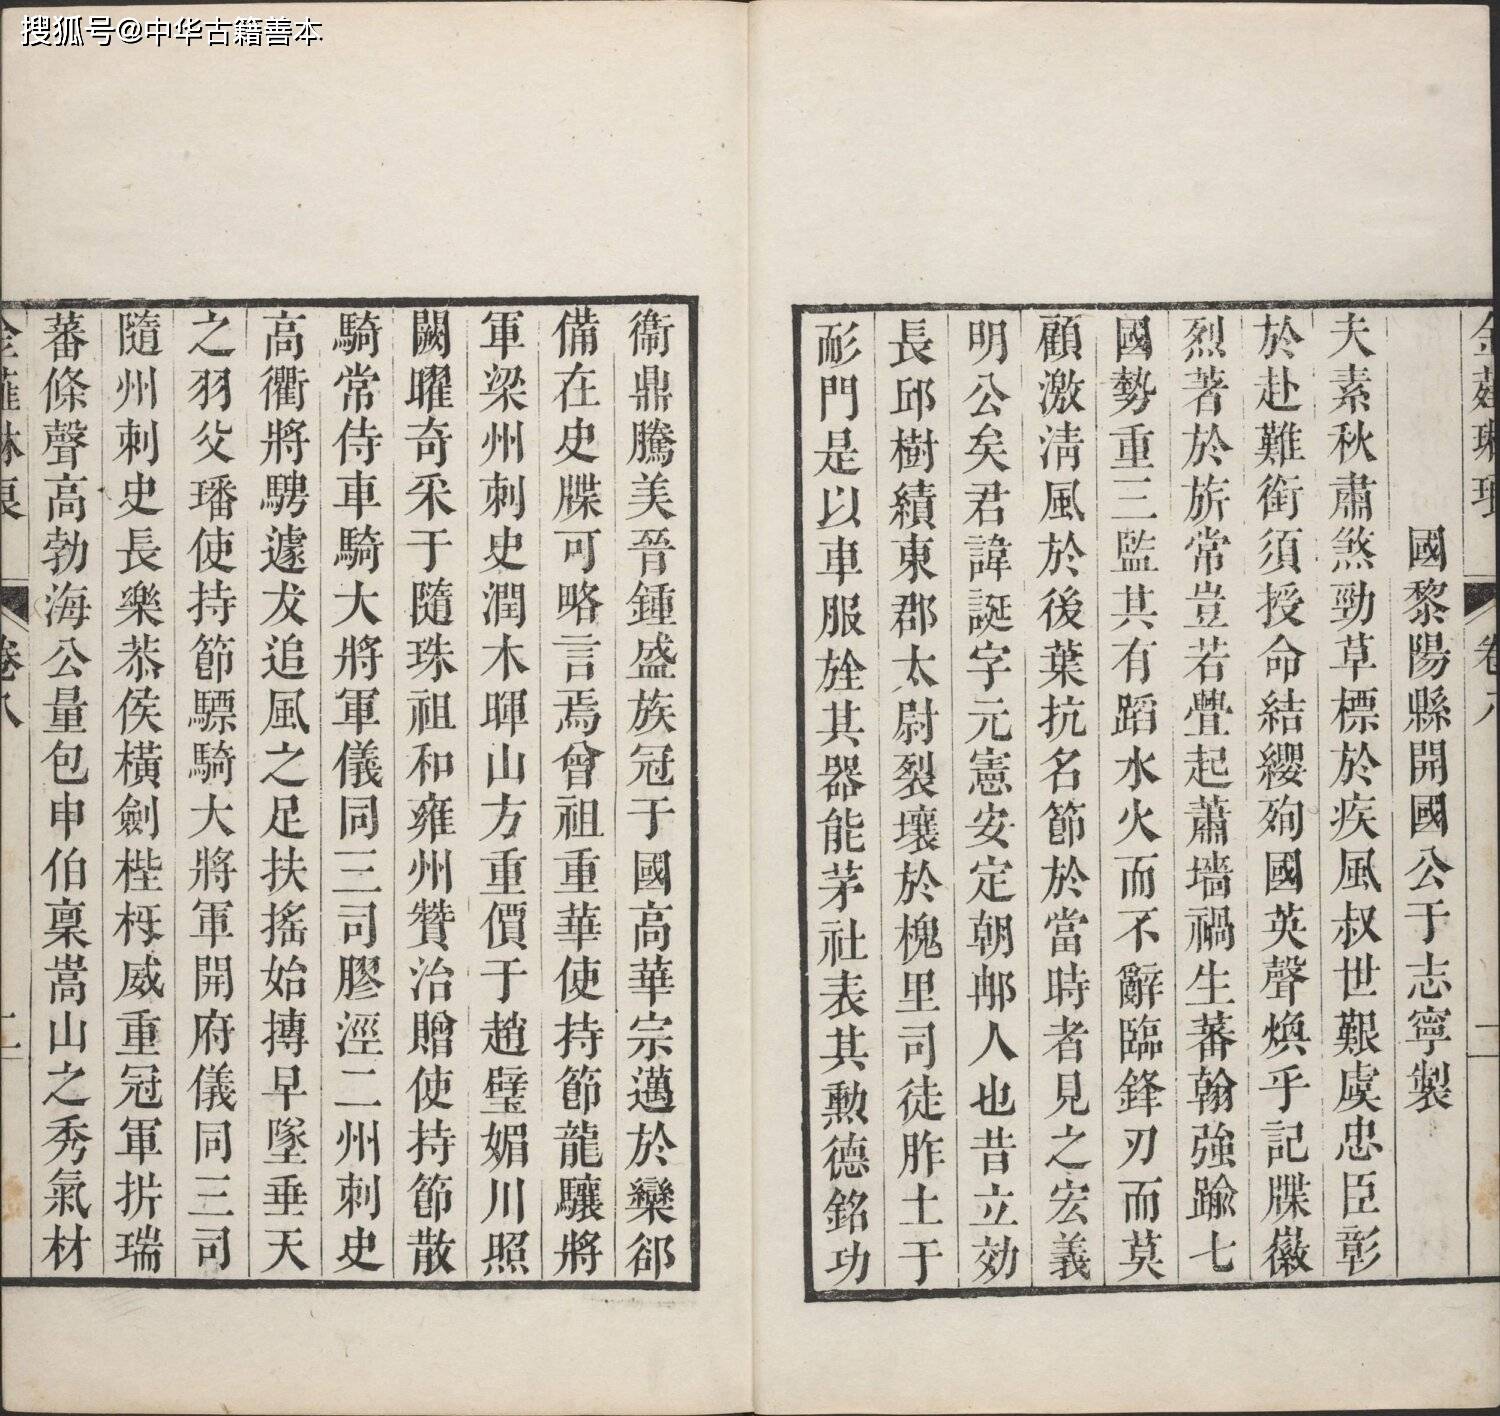 搜狐号@中华古籍善本
國黎陽縣開國公于志寧製
夫素秋肅煞勁草標於疾風叔世艱虞忠臣彰
於赴難銜須授命結纓殉國英聲煥乎記牒徽
烈著於旂常豈若舋起蕭墻禍生蕃翰強踰七
國勢重三監其有蹈水火而不辭臨鋒刃而莫
顧激淸風於後葉抗名節於當時者見之宏義
明公矣君諱誕字元憲安定朝𨙻人也昔立効
長邱樹績東郡太尉裂壤於槐里司徒胙土于
耏門是以車服旌其器能茅社表其勲德銘功
衞鼎騰美晉鍾盛族冠于國高華宗邁於欒郤
備在史牒可略言焉曾祖重華使持節龍驤將
軍梁州刺史潤木暉山方重價于趙璧媚川照
闕曜奇采于隨珠祖和雍州贊治贈使持節散
騎常侍車騎大將軍儀同三司膠涇二州刺史
高衢將騁遽犮追風之足扶搖始摶早墜垂天
之羽父璠使持節驃騎大將軍開府儀同三司
隨州刺史長樂恭侯橫劍梐枑威重冠軍折瑞
蕃條聲高勃海公量包申伯稟嵩山之秀氣材
卷八